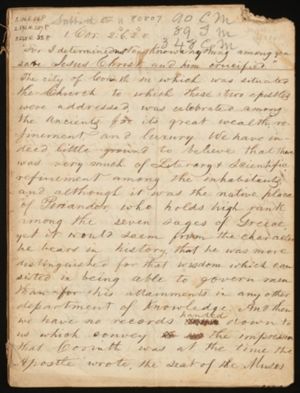 90 C M
89 J M
348 C M
1 Cor. 2: 2.
"For I determined not to know any thing among you
save Jesus Christ and him crucified"
The city of Corinth in which was situated
the Church to which these two epistles
were addressed, was celebrated among
the Ancients for its great wealth, re-
finement and luxury. We have in-
deed little ground to believe that there
was very much of Literary & Scientific
refinement among the inhabitants
and although it was the native place
of Periander, who holds high rank
among the seven sages of Greece,
yet it would seem from the character
he bears in history, that he was more
distinguished for that wisdom which con-
sisted in being able to govern men
than for his attainments in any other
department of knowledge. And then
we have no records handed down to
us which convey the impression
that Corinth was at the time the
Apostle wrote, the seat of the Muses